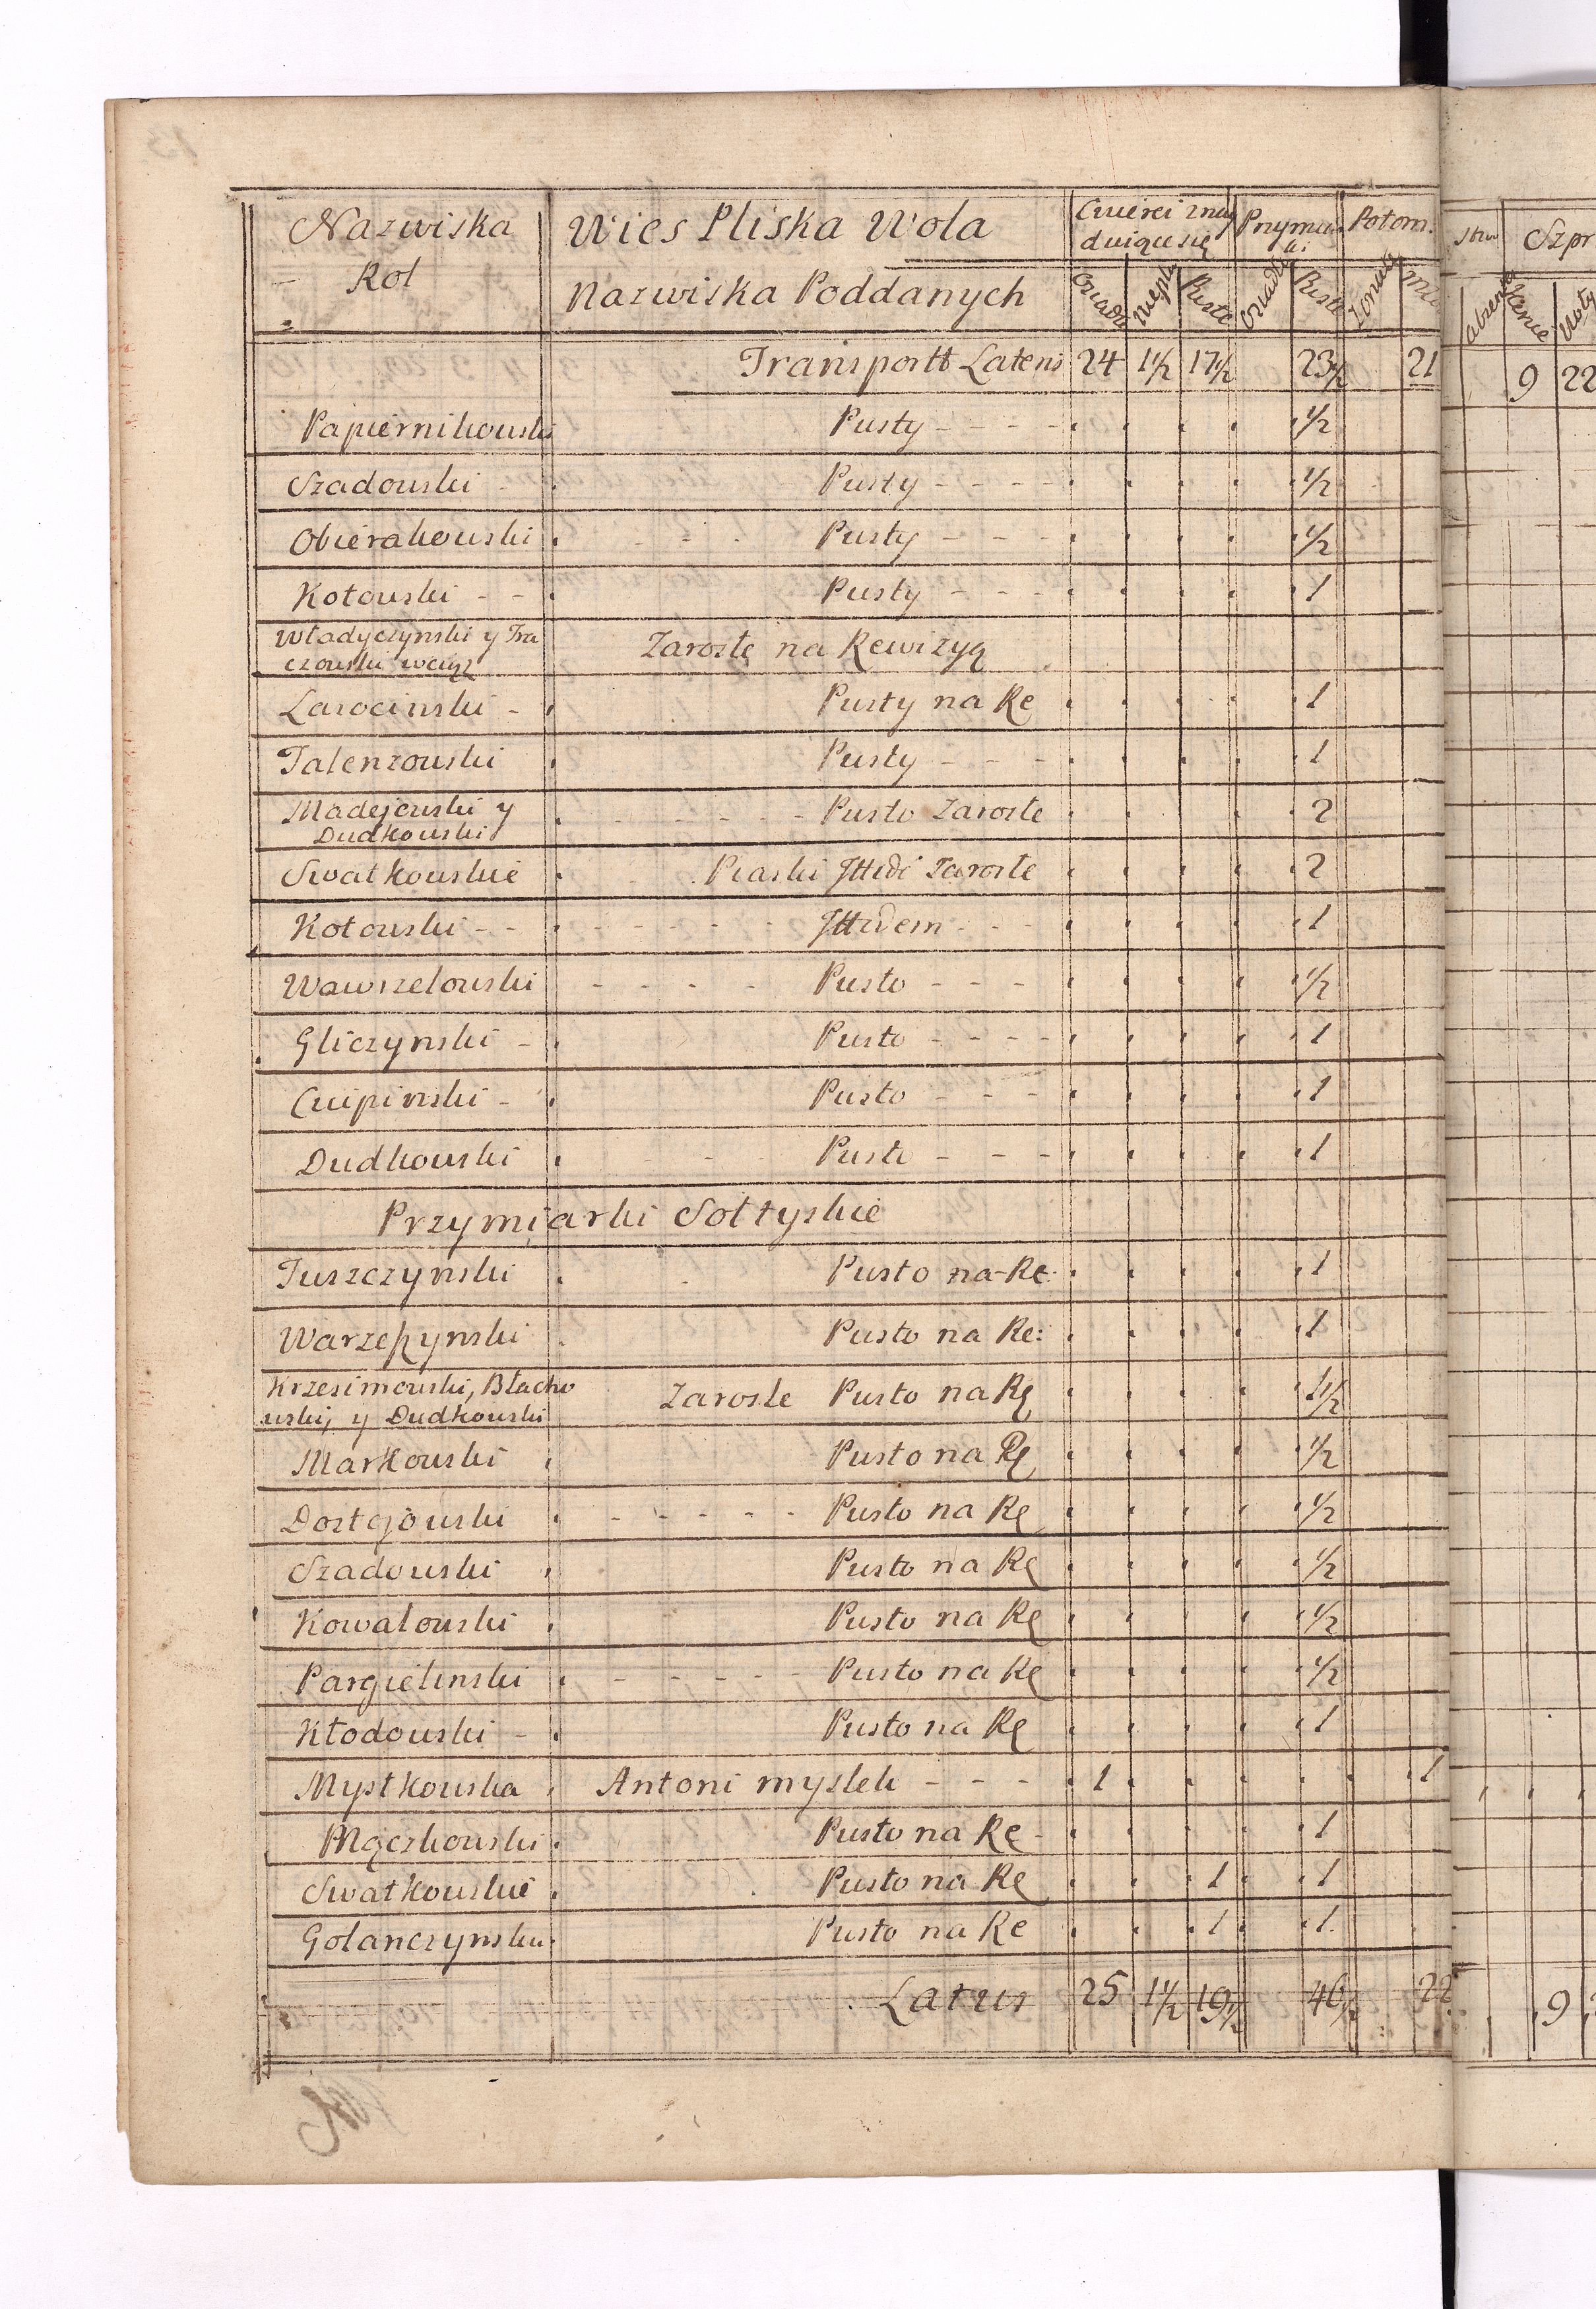 Nazwiska Rol
Wies Pliska Wola
Nazwiska Poddanych
Potom.
Szpr
Transportt Latens 24 1½ 17½ 23½ 21 9 22
Papiernikowski Pusty ½
Szadowski Pusty ½
Obierakowski Pusty ½
Kotowski Pusty 1
Władyczynski y Tra
czowski
Zarosłe na Rewizyą
Lasocinski Pusty na Re 1
Talenzowski Pusty 1
Madejowski y
Dudkowski Pusto Zarosłe 2
Swatkowskie Piaski Zarosłe 2
Kotowski Ittidem 1
Wawrzelowski Pusto ½
Gliczynski Pusto 1
Cwipinski Pusto 1
Dudkowski Pusto 1
Przymiarki Sołtyskie
Tuszczynski Pusto na Re: 1
Warzepynski Pusto na Re: 1
Krzesimowski, Błacho
wski, y Dudkowski Zarosle Pusto na Rę 1½
Markowski Pusto na Rę ½
Dostojowski Pusto na Rę ½
Szadowski Pusto na Rę ½
Kowalowski Pusto na Rę ½
Pargielinski Pusto na Rę ½
Kłodowski Pusto na Rę 1
Mystkowska Antoni myslek 1 1
Mączkowski Pusto na Rę 1
Swatkowskie Pusto na Rę 1 1
Golanczynskie Pusto na Re 1 1
Latus 25 1½ 19½ 46½ 22 9